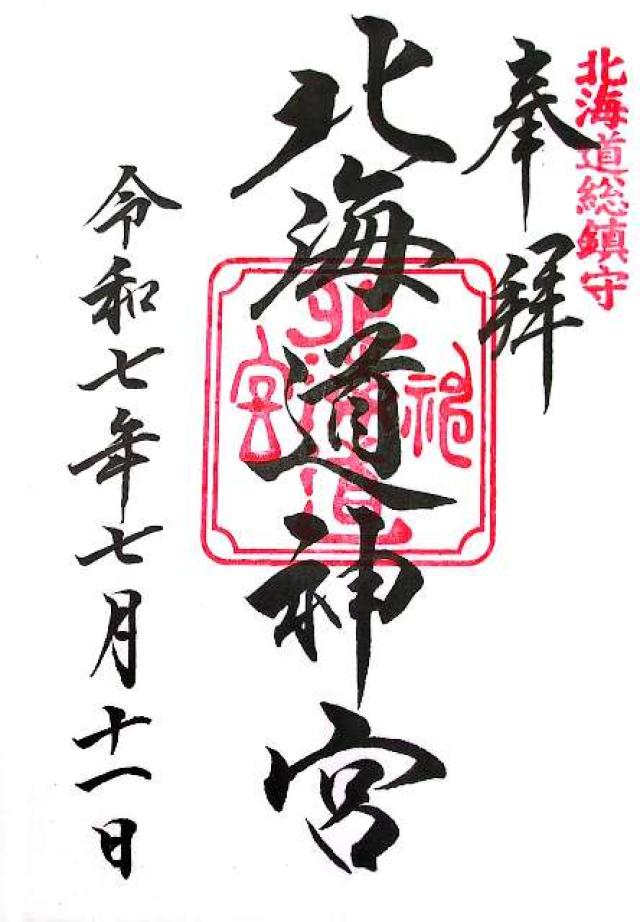 北海道総鎮守
奉拝
北海道神宮
北海道神宮
令和七年七月十一日